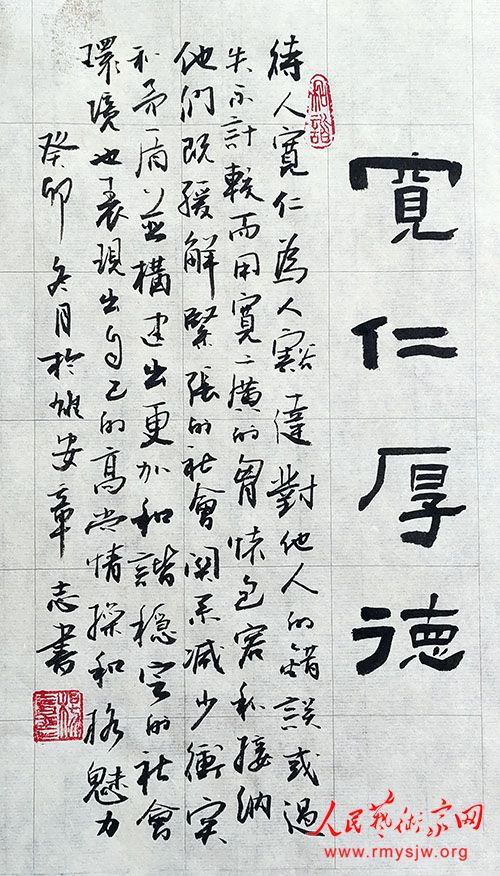 寬仁厚德
和諧
待人寬仁為人豁達對他人的錯誤或過
失不計較而用寬廣的胷懷包容和接納
他們既緩解緊張的社會関系减少衝突
和矛盾並構建出更加和諧穩定的社會
環境也表現出自己的高尚情操和格魅力
癸卯冬月於雄安章志書
人民藝術家网
www.rmysjw.org